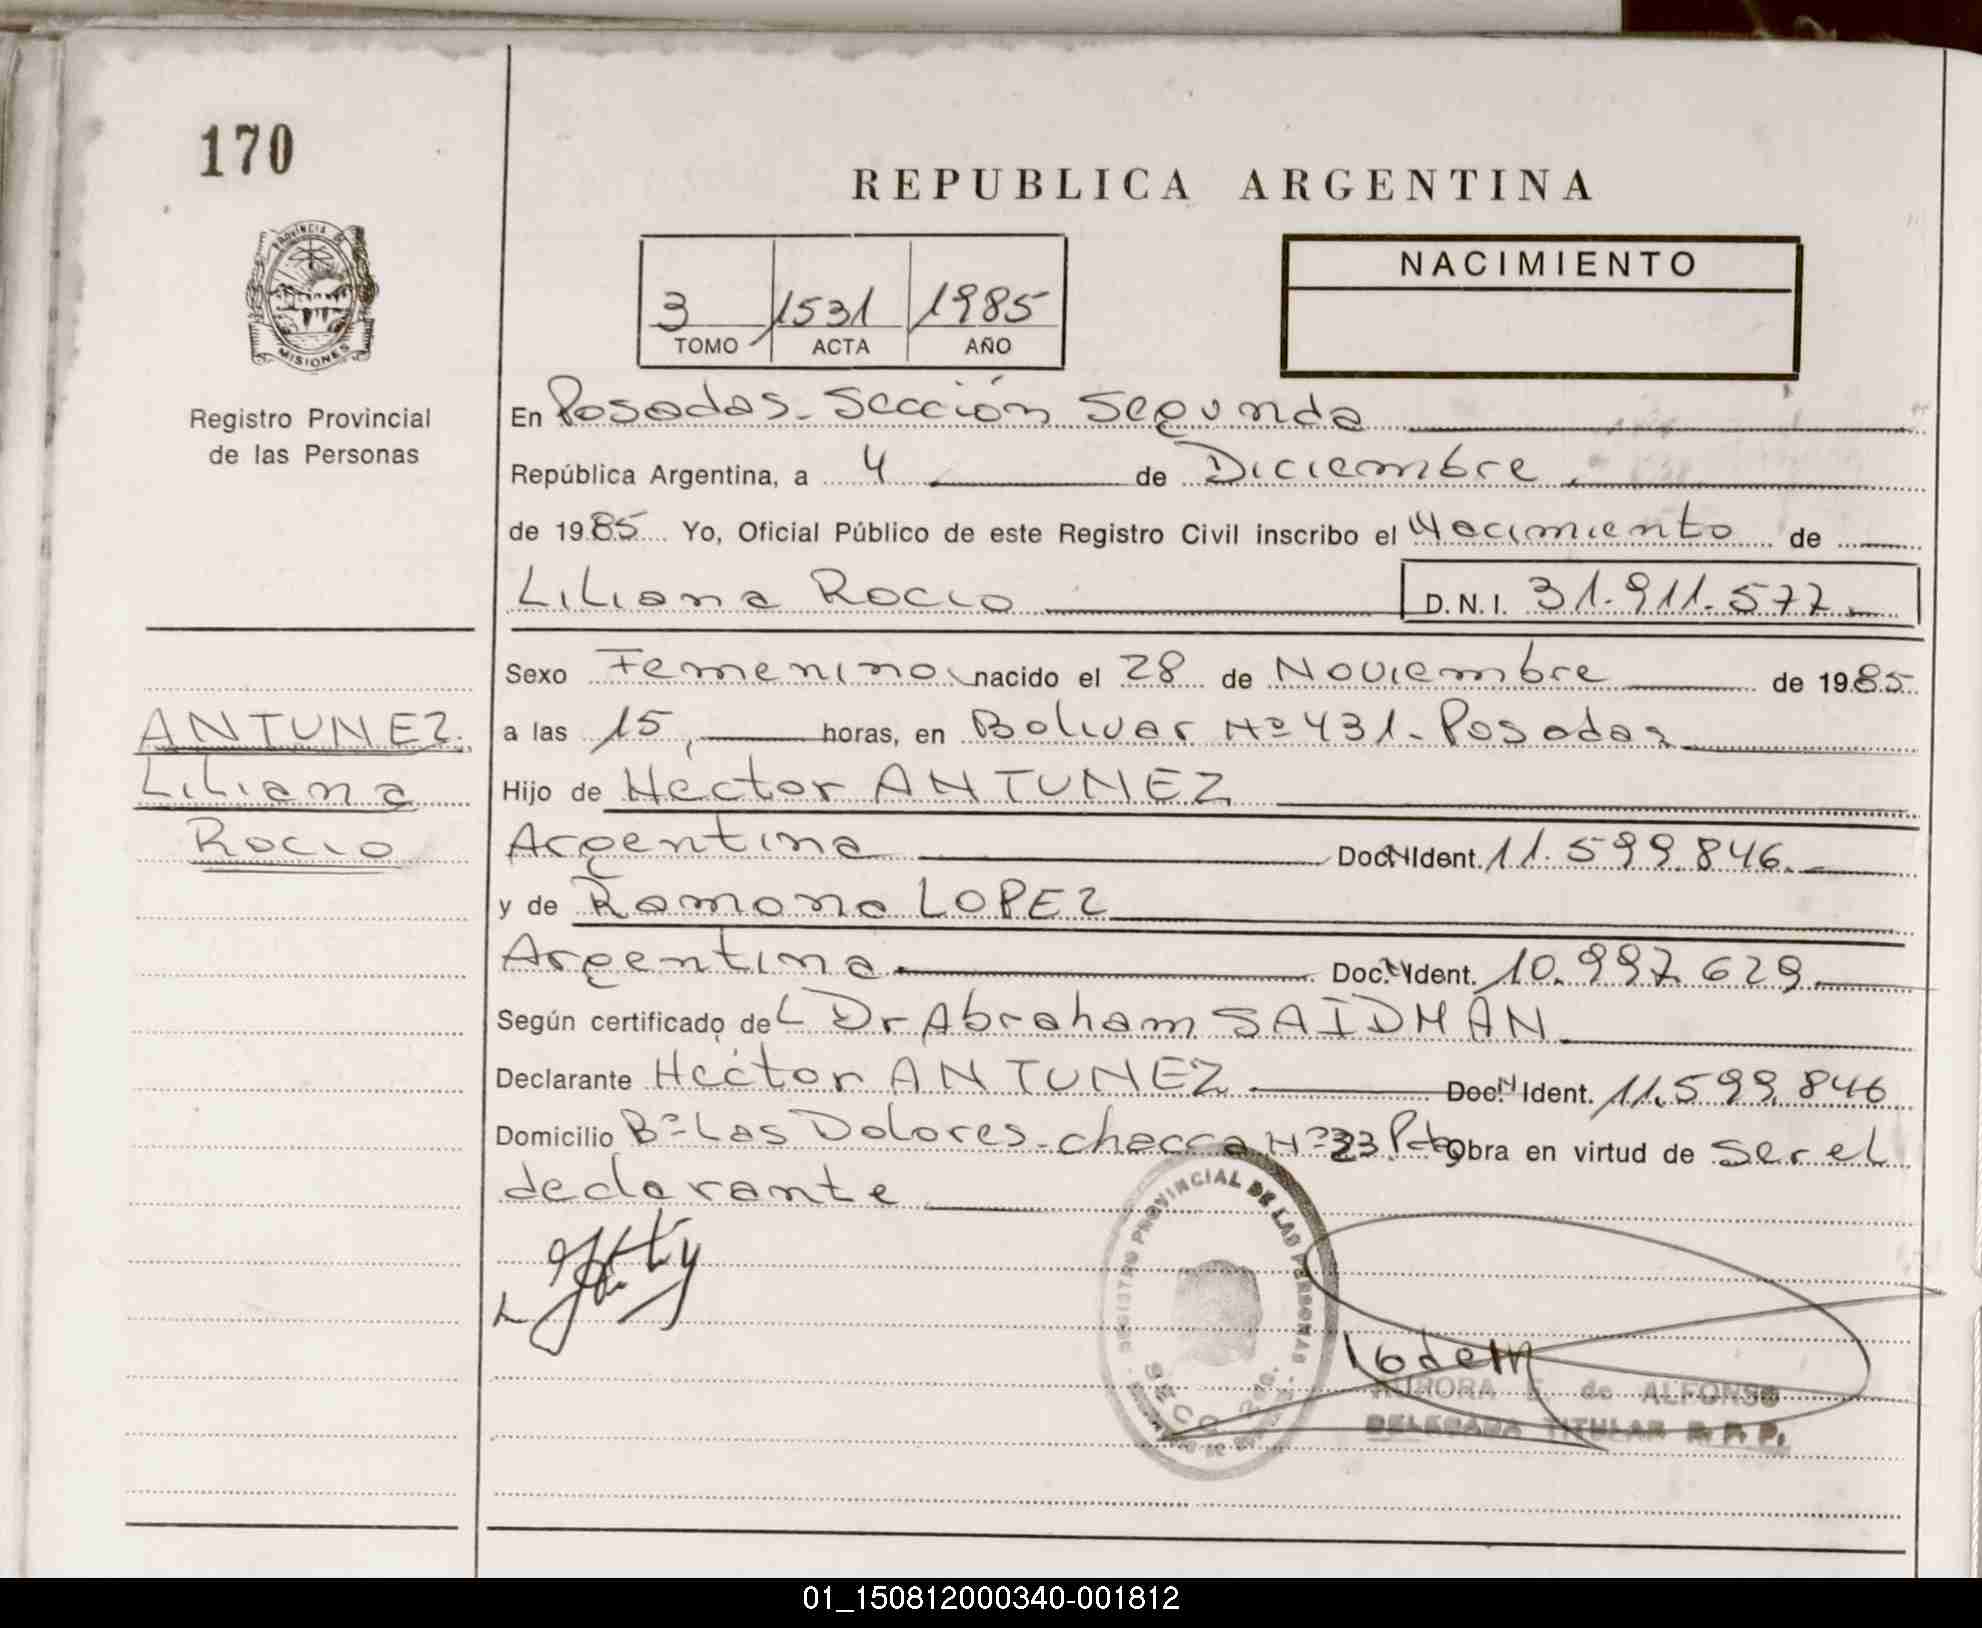 170
REPUBLICA ARGENTINA
PROVINCIA DE
MISIONES
Registro Provincial
de las Personas
3 1531 1985
TOMO ACTA AÑO
NACIMIENTO
En Posadas - Sección Segunda
República Argentina, a 4 de Diciembre
de 1985 Yo, Oficial Público de este Registro Civil inscribo el Nacimiento de
Liliana Rocio D.N.I. 31.911.577
Sexo Femenino nacido el 28 de Noviembre de 1985
a las 15, horas, en Bolivar Nº 431 - Posadas
ANTUNEZ
Liliana
Rocio
Hijo de Héctor ANTUNEZ
Argentina Doc. N Ident. 11.599.846
y de Ramona LOPEZ
Argentina Doc. N Ident. 10.997.629
Según certificado del Dr Abraham SAIDMAN
Declarante Héctor ANTUNEZ Doc. N Ident. 11.599.846
Domicilio Bº Las Dolores - chacra Nº 33 Obra en virtud de ser el
declarante
REGISTRO PROVINCIAL DE LAS PERSONAS
AURORA E. de ALFONSO
DELEGADA TITULAR R. P. P.
01_150812000340-001812